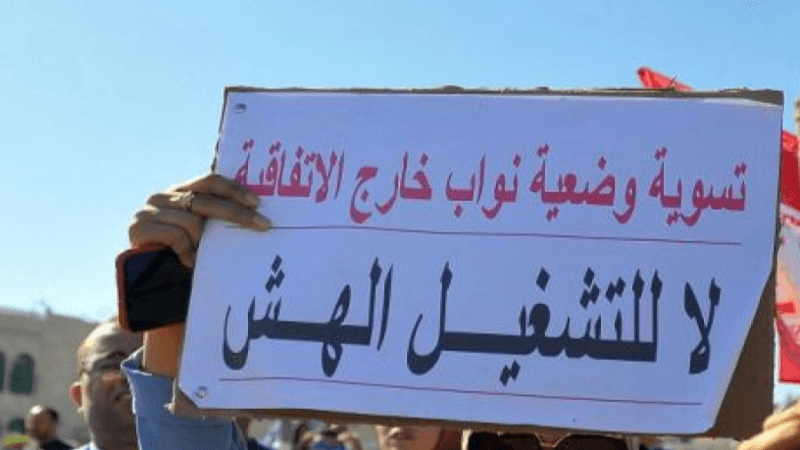 تسوية وضعية نواب خارج الاتفاقية
لا للتشغيل الهش